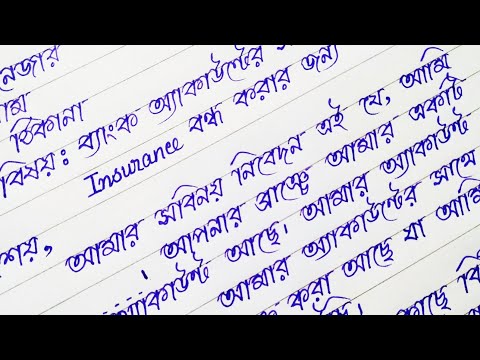 নেজার
ঠিকানা
বিষয়ঃ ব্যাংক অ্যাকাউন্টের
Insurance বন্ধ করার জন্য
শয়,
আমার সবিনয় নিবেদন এই যে, আমি
আপনার ব্রাঞ্চে আমার একটি
অ্যাকাউন্ট আছে। আমার অ্যাকাউন্ট
আমার অ্যাকাউন্টের সাথে
করা আছে যা আমি
কাছে